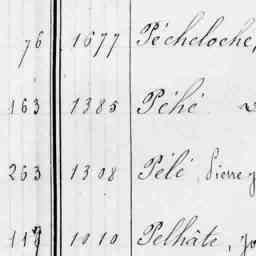 76 1677 Pécheloche,
163 1385 Péhé
263 1308 Pélé, Pierre
119 1010 Pelhâte,